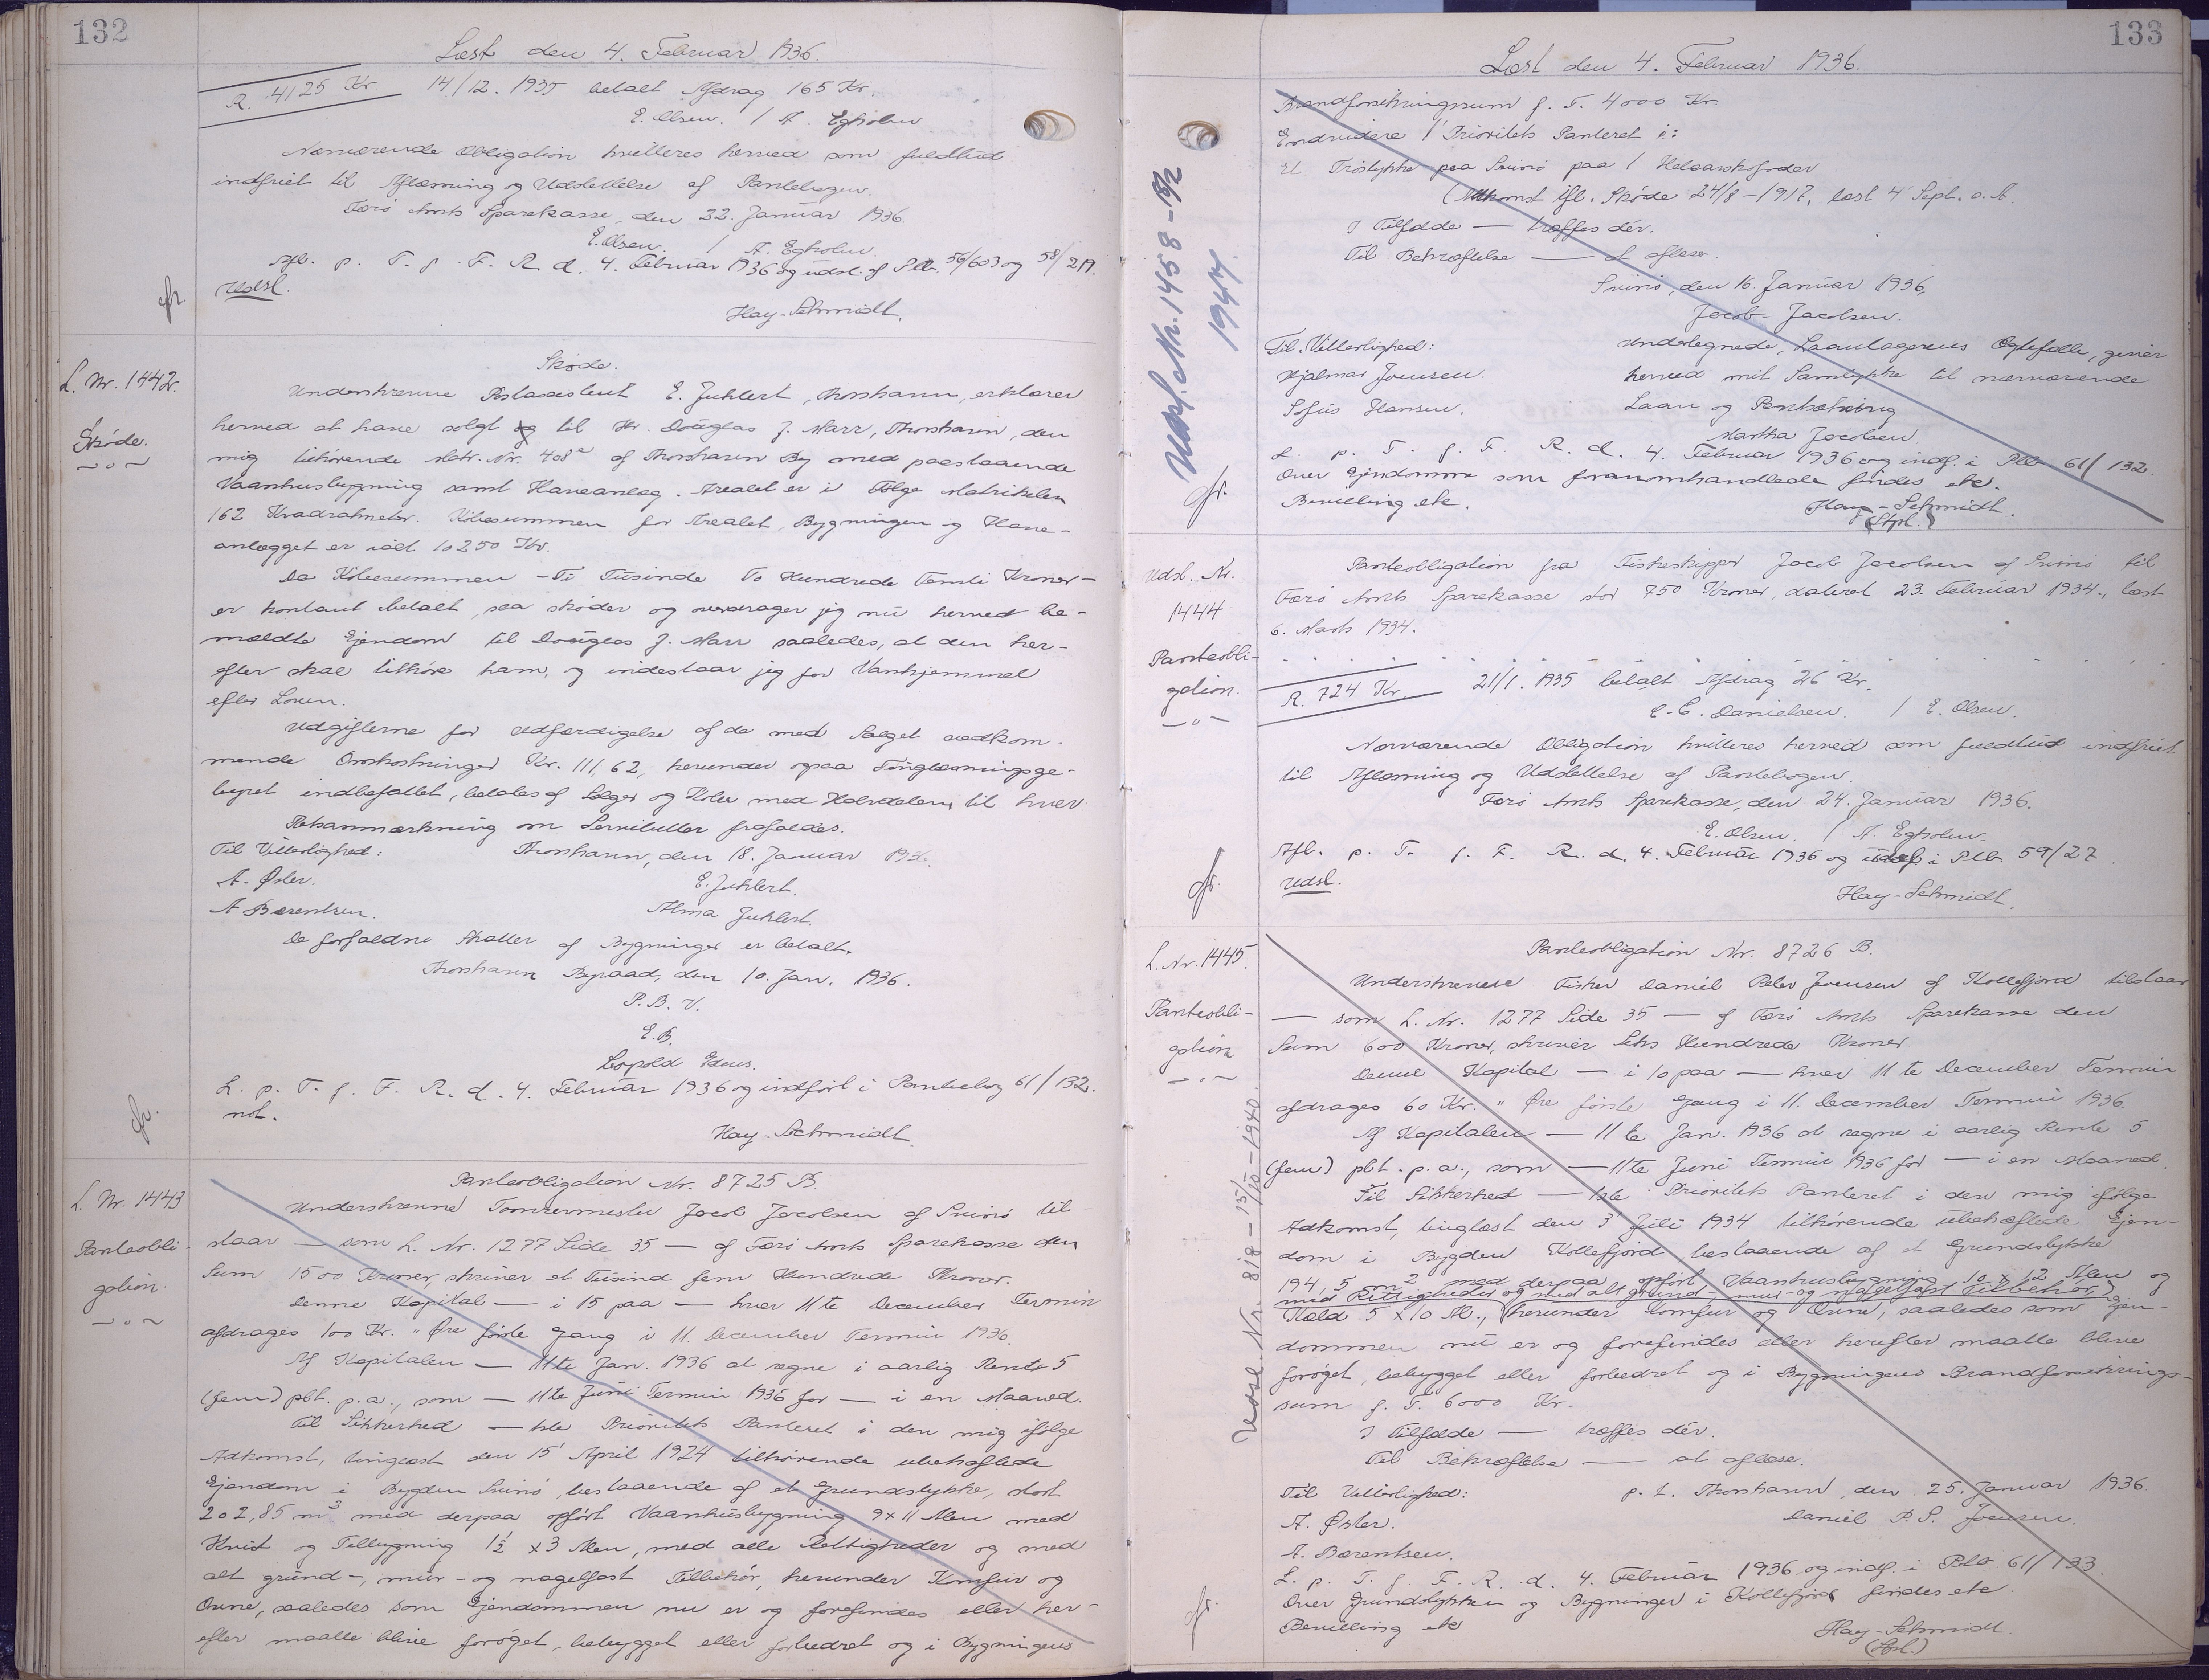 132
Læst den 4. Februar 1936.
R. 4125 Kr. 14/12. 1935 betalt Afdrag 165 Kr.
E. Olsen. / A. Egholm
Nærværende Obligation kvitteres herved som fuldtud
indfriet til Aflæsning og Udslettelse af Pantebogen.
Færø Amts Sparekasse, den 22. Januar 1936.
E. Olsen. / A. Egholm.
Afl. p. T. f. F. R. d. 4. Februar 1936 og udsl. af Ptb. 56/603 og 58/219.
Udsl.
Hay-Schmidt.
L. Nr. 1442.
Skøde.
Skøde.
Underskrevne E. Juhlert, Thorshavn, erklærer
herved at have solgt og til Hr. Douglas J. Marr, Thorshavn, den
mig tilhørende Matr. Nr. 408e af Thorshavn By med paastaaende
Vaanhusbygning samt Haveanlæg. Arealet er i Følge Matrikelen
162 Kvadratmeter. Købesummen for Arealet, Bygningen og Have-
anlægget er ialt 10250 Kr.
Da Købesummen - Ti Tusinde To Hundrede Femti Kroner -
er kontant betalt, saa skøder og overdrager jeg nu herved be-
mældte Ejendom til Douglas J. Marr saaledes, at den her-
efter skal tilhøre ham, og indestaar jeg for Vanhjemmel
efter Loven.
Udgifterne for Udfærdigelse af de med Salget vedkom-
mende Omkostninger Kr. 111,62, herunder ogsaa Tinglæsningsge-
byret indbefattet, betales af Sælger og Køber med Halvdelen til hver
Retsanmærkning om Servitutter frafaldes.
Til Vitterlighed: Thorshavn, den 18. Januar 1936.
A. Øster. E. Juhlert.
A Bærentsen. Alma Juhlert.
De forfaldne Skatter af Bygninger er betalt.
Thorshavn Byraad, den 10. Jan. 1936.
P. B. V.
E. B.
Leopold
L. p. T. f. F. R. d. 4. Februar 1936 og indført i Pantebog 61/132.
not.
Hay-Schmidt.
L. Nr. 1443
Panteobli-
gation.
Panteobligation Nr. 8725 B.
Underskrevne Tømrermester Jacob Jacobsen af Svinø til
staar — som L. Nr. 1277 Side 35 — af Færø Amts Sparekasse den
Sum 1500 Kroner, skriver et Tusind fem Hundrede Kroner.
Denne Kapital — i 15 paa — hver 11te December Termin
afdrages 100 Kr. " Øre første Gang i 11. December Termin 1936.
Af Kapitalen — 11te Jan. 1936 at regne i aarlig Rente 5
(fem) pCt. p.a., som — 11te Juni Termin 1936 for — i en Maaned.
Til Sikkerhed — 1ste Prioritets Panteret i den mig ifølge
Adkomst, tinglæst den 15' April 1924 tilhørende ubehæftede
Ejendom i Bygden Svinø, bestaaende af et Grundstykke, stort
202,85 m2 med derpaa opført Vaanhusbygning 9 x 11 Alen med
Kvist og Tilbygning 1½ x 3 Alen, med alle Rettigheder og med
alt grund-, mur- og nagelfast Tilbehør, herunder Komfur og
Ovne, saaledes som Ejendommen nu er og forefindes eller her-
efter maatte blive forøget, bebygget eller forbedret og i Bygningens
133
Læst den 4. Februar 1936.
Brandforsikringssum f. T. 4000 Kr.
Endvidere 1' Prioritets Panteret i:
et Trøstykke paa Svinø paa 1 Helaarskofoder
(Adkomst ifl. Skøde 24/8 - 1917, læst 4' Sept. s. A.
I Tilfælde — træffes dér.
Til Bekræftelse — at aflæse.
Svinø, den 16. Januar 1936,
Jacob Jacobsen.
Til Vitterlighed: Undertegnede, Laantagerens Ægtefælle, giver
Hjalmar Joensen. herved mit Samtykke til nærværende
Sofus Hansen. Laan og Pantsætning
Martha Jacobsen.
L. p. T. f. F. R. d. 4. Februar 1936 og indf. i Ptb 61/132.
Over Ejendomme som foranomhandlede findes etc.
Bevilling etc.
Hay-Schmidt.
(Stpl.)
Udsl. Nr. 1458 - 18/2
1947.
Udsl. Nr.
1444
Panteobli-
gation.
Panteobligation fra Fiskeskipper Jacob Jacobsen af Svinø til
Færø Amts Sparekasse stor 750 Kroner, dateret 23. Februar 1934, læst
6. Marts 1934.
R. 724 Kr. 21/1. 1935 betalt Afdrag 26 Kr.
C. C. Danielsen. / E. Olsen.
Nærværende Obligation kvitteres herved som fuldtud indfriet
til Aflæsning og Udslettelse af Pantebogen.
Færø Amts Sparekasse, den 24. Januar 1936.
E. Olsen. / A. Egholm
Afl. p. T. f. F. R. d. 4. Februar 1936 og i Ptb 59/27.
Udsl.
Hay-Schmidt.
L. Nr. 1445.
Panteobli-
gation
Udsl. Nr. 818 - 15/10 - 1940.
Panteobligation Nr. 8726 B.
Underskrevne Fisker Daniel Peter Joensen af Kollefjord tilstaar
— som L. Nr. 1277 Side 35 — af Færø Amts Sparekasse den
Sum 600 Kroner, skriver Seks Hundrede Kroner.
Denne Kapital — i 10 paa — hver 11te December Termin
afdrages 60 Kr. " Øre første Gang i 11. December Termin 1936.
Af Kapitalen — 11te Jan. 1936 at regne i aarlig Rente 5
(fem) pCt. p.a., som — 11te Juni Termin 1936 for — i en Maaned.
Til Sikkerhed — 1ste Prioritets Panteret i den mig ifølge
Adkomst, tinglæst den 3' Juli 1934 tilhørende ubehæftede Ejen-
dom i Bygden Kollefjord bestaaende af et Grundstykke
194,5 m2 med derpaa opført Vaanhusbygning 10 x 12 Alen og
med Rettigheder og med alt grund-, mur- og nagelfast Tilbehør)
Kæld 5 x 10 Al., (herunder Komfur og Ovne, saaledes som Ejen-
dommen nu er og forefindes eller herefter maatte blive
forøget, bebygget eller forbedret og i Bygningens Brandforsikrings-
sum f. T. 6000 Kr.
I Tilfælde — træffes dér.
Til Bekræftelse — at aflæse.
Til Vitterlighed: p. t. Thorshavn, den 25. Januar 1936.
A. Øster. Daniel P. S. Joensen.
A. Bærentsen.
L. p. T. f. F. R. d. 4. Februar 1936 og indf. i Ptb. 61/133.
Over Grundstykken og Bygninger i Kollefjord findes etc.
Bevilling etc
Hay-Schmidt.
(Stpl.)